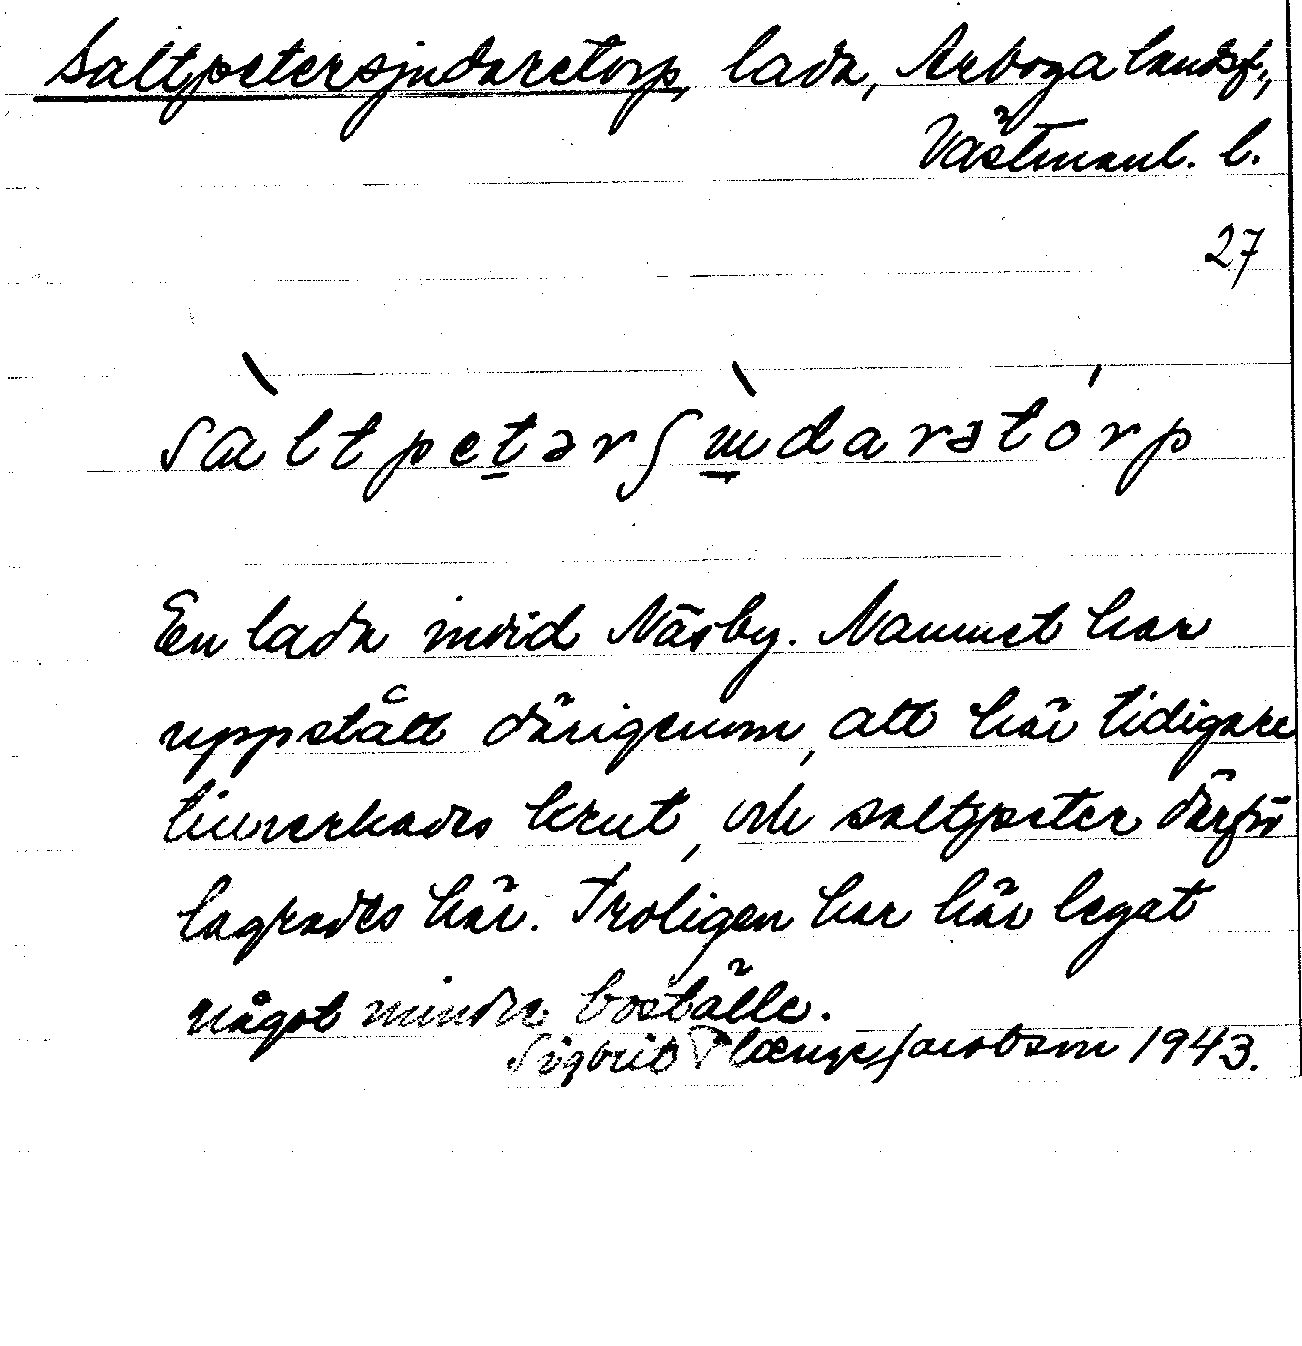 Saltpetersjudaretorp, lada, Arboga landsf.,
Västmanl. l.
27
En lada invid Näsby. Namnet har
uppstått därigenom, att här tidigare
tillverkades krut, och saltpeter därför
lagrades här. Troligen har här legat
något mindre boställe.
Sigbrit Plænge Jacobson 1943.